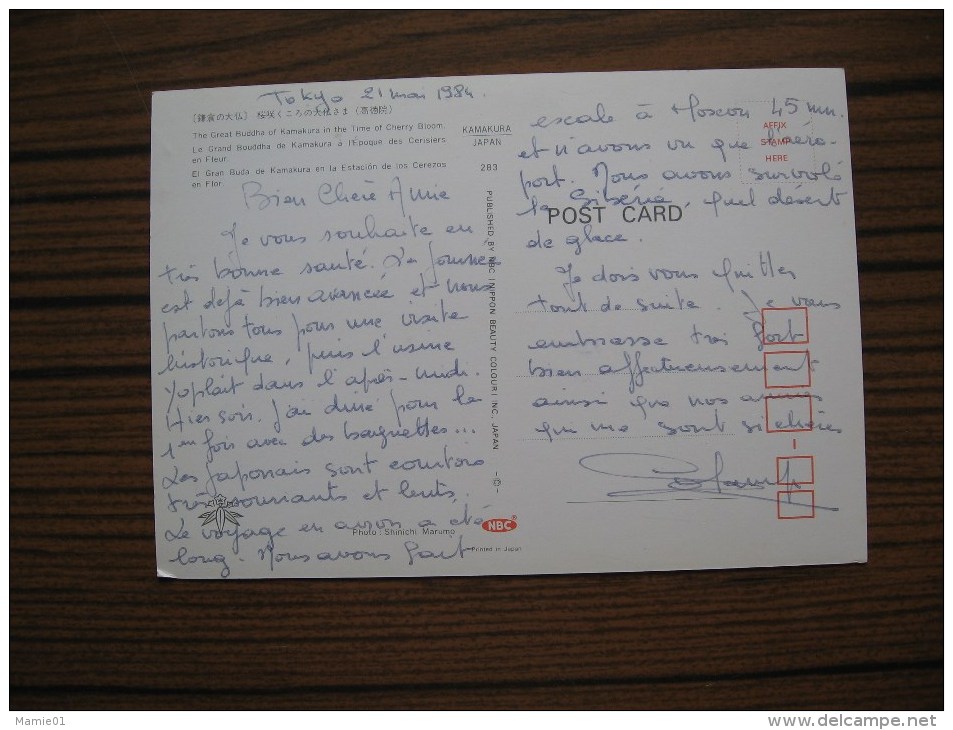 Tokyo 21 mai 1984.
[鎌倉の大仏] 桜咲くころの大仏さま (高徳院)
The Great Buddha of Kamakura in the Time of Cherry Bloom.
Le Grand Bouddha de Kamakura à l'Epoque des Cerisiers
en Fleur.
El Gran Buda de Kamakura en la Estación de los Cerezos
en Flor.
KAMAKURA
JAPAN
283
Bien Chère Amie
Je vous souhaite en
très bonne santé. La journée
est déjà bien avancée et nous
partons tous pour une visite
historique, puis l'usine
Yoplait dans l'après-midi.
Hier soir, j'ai diné pour la
1ère fois avec des baguettes...
Les Japonais sont courtois
très souriants et lents.
Le voyage en avion a été
long. Nous avons fait
Photo: Shinichi Marumo
PUBLISHED BY NBC (NIPPON BEAUTY COLOUR) INC., JAPAN
NBC
Printed in Japan
escale à Moscou 45 mn.
et n'avons vu que l'aéro-
port. Nous avons survolé
la Sibérie, quel désert
de glace.
AFFIX
STAMP
HERE
POST CARD
Je dois vous quitter
tout de suite. Je vous
embrasse très fort
bien affectueusement
ainsi que nos amies
qui me sont si chères
Mamie01
http://www.delcampe.net